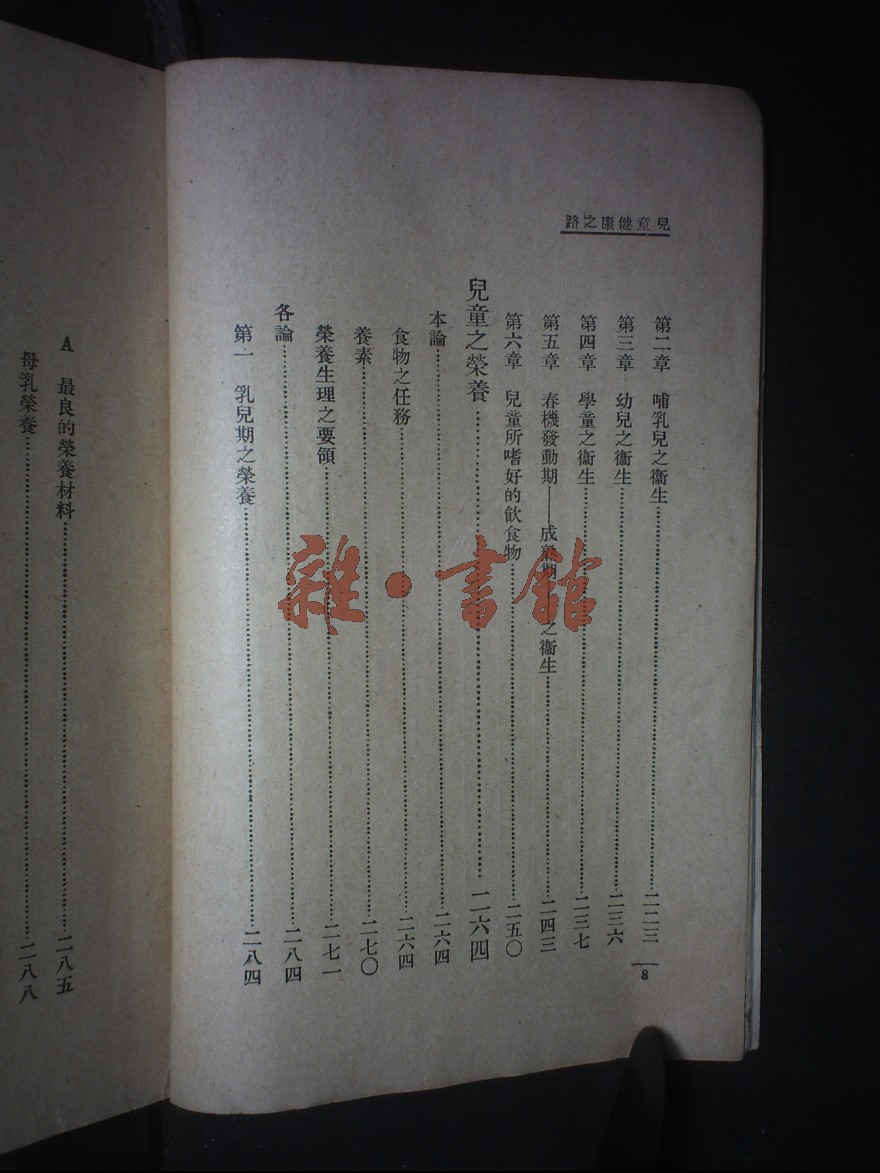 兒童健康之路
第二章　哺乳兒之衞生……二二三
第三章　幼兒之衞生……二三六
第四章　學童之衞生……二三七
第五章　春機發動期——成熟期　之衞生……二四三
第六章　兒童所嗜好的飲食物……二五〇
兒童之榮養……二六四
本論……二六四
食物之任務……二六四
養素……二七〇
榮養生理之要領……二七一
各論……二八四
第一　乳兒期之榮養……二八四
8
A　最良的榮養材料……二八五
母乳榮養……二八八
雜·書館